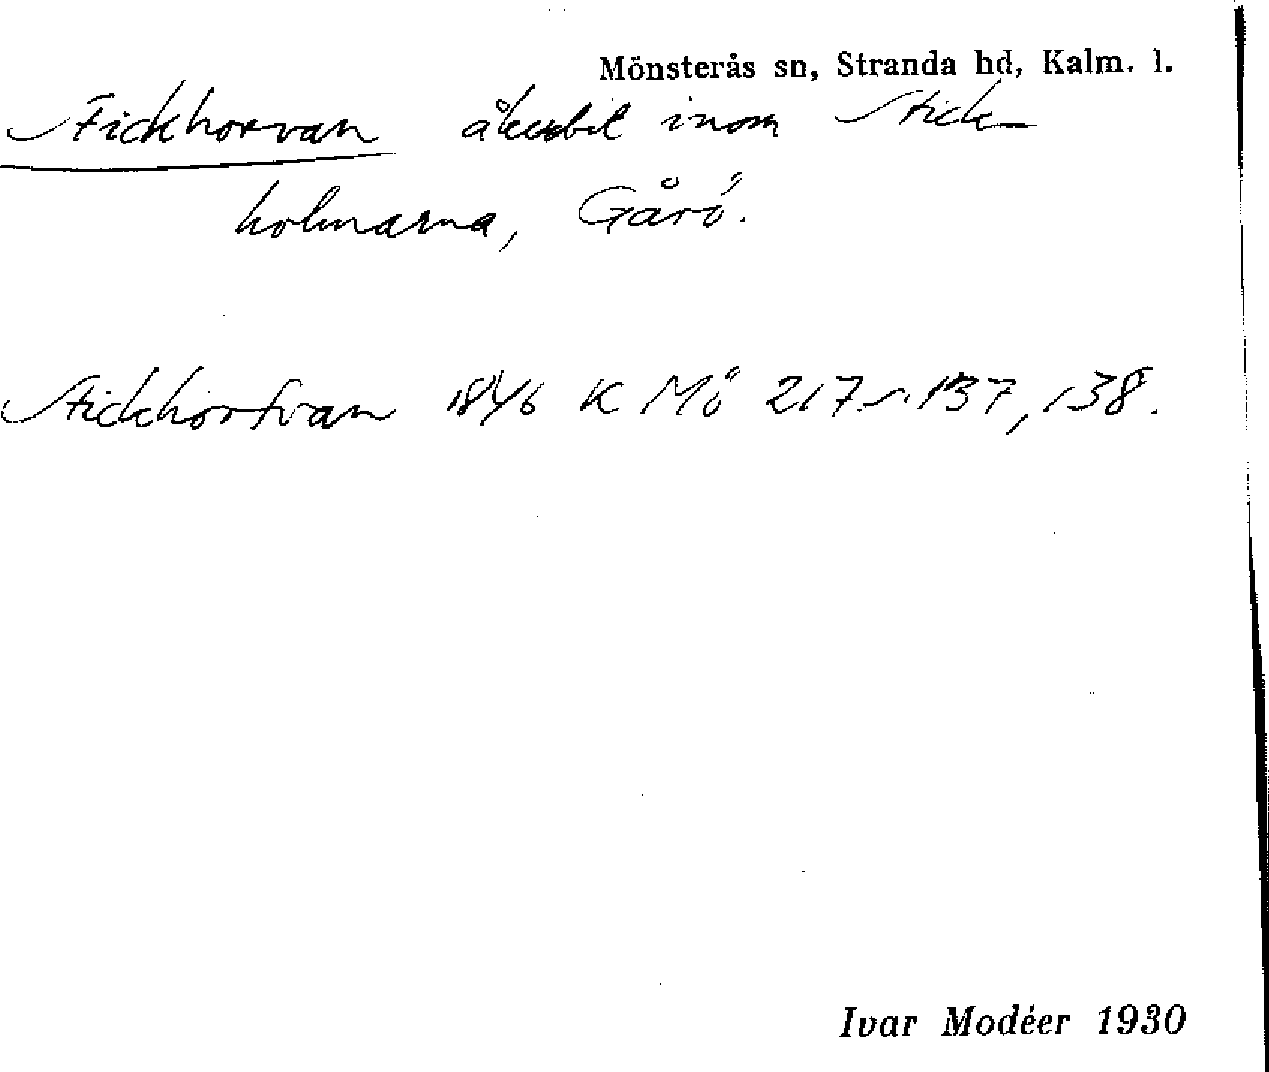 Mönsterås sn, Stranda hd, Kalm. l.
Stickhorvan åkerbit inom Stick-
holmarna, Gårö.
Stickhorfvan 1846 K Mö 217 s. 137, 138.
Ivar Modéer 1930